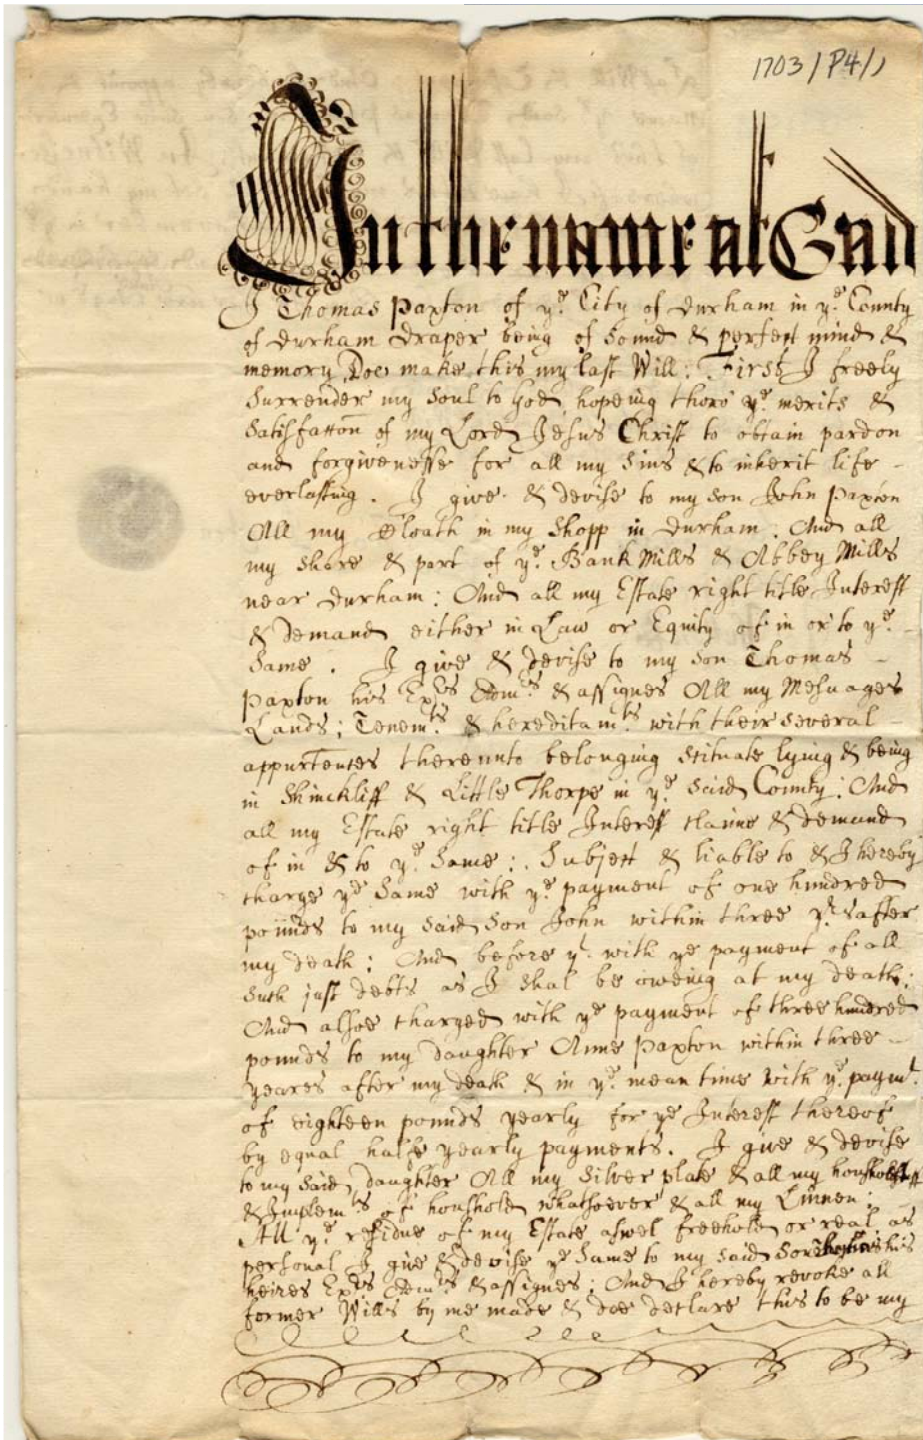 1703/P4/1
In the name of God
I Thomas Paxton of ye. City of Durham in ye. County
of Durham Draper being of Sound & perfect mind &
memory Doe make this my last Will: First I freely
Surrender my Soul to God hopeing thoro' ye. merits &
Satisfaccon of my Lord Jesus Christ to obtain pardon
and forgivenesse for all my Sins & to inherit life -
everlasting. I give & devise to my son John Paxton
All my Cloath in my Shopp in Durham: And all
my share & part of ye. Bank Mills & Abbey Mills
near Durham: And all my Estate right title Interest
& demand either in Law or Equity of in or to ye. -
Same. I give & devise to my son Thomas -
Paxton his Exrs Admrs. & assignes All my Mesuages
Lands; Tenemts. & hereditamts. with their several -
appurtences thereunto belonging Scituate lying & being
in Shinckliff & Little Thorpe in ye. said County: And
all my Estate right title Interest claime & demand
of in & to ye. Same: Subject & liable to & I hereby
charge ye Same with ye. payment of one hundred
pounds to my said Son John within three yrs after
my death: And before yt. with ye payment of all
such just debts as I shal be oweing at my death;
And alsoe charged with ye payment of three hundred
pounds to my daughter Anne Paxton within three -
yeares after my death & in ye. mean time with ye. paymt.
of eighteen pounds yearly for ye Interest thereof
by equal halfe yearly payments. I give & devise
to my said daughter All my Silver plate & all my housholdstuff
& Implemts of houshold whatsoever & all my Linnen:
All ye. residue of my Estate aswel freehold or real as
personal I give & devise ye Same to my said Son Thomas his
heires Exrs Admrs & assignes: And I hereby revoke all
former Wills by me made & doe declare this to be my